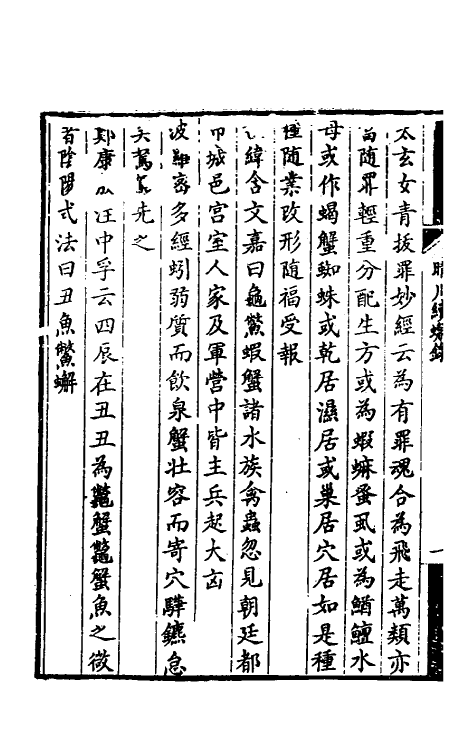 晴川續蟹錄
一
太玄女青拔罪妙經云為有罪魂合為飛走萬類亦
當随罪輕重分配生方或為蝦蟆蚤虱或為鰌鱣水
母或作蝎蟹蜘蛛或乾居濕居或巢居穴居如是種
種随業改形随福受報
緯含文嘉曰龜鱉蝦蟹諸水族禽蟲忽見朝廷都
市城邑宫室人家及軍營中皆主兵起大凶
波羅密多經蚓弱質而飲泉蟹壯容而寄穴驊鑣怠
矣駑先之
鄭康成注中孚云四辰在丑丑為鼈蟹鼈蟹魚之微
者陰陽式法曰丑魚鱉蠏